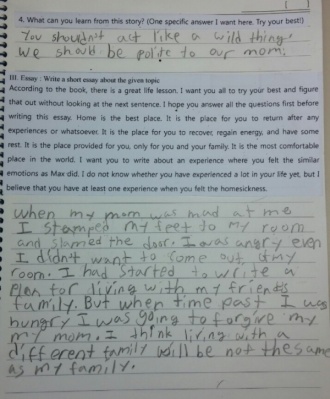 4. What can you learn from this story? (One specific answer I want here. Try your best!)
You shouldn't act like a wild thing.
We should be polite to our mom.
III. Essay : Write a short essay about the given topic
According to the book, there is a great life lesson. I want you all to try your best and figure
that out without looking at the next sentence. I hope you answer all the questions first before
writing this essay. Home is the best place. It is the place for you to return after any
experiences or whatsoever. It is the place for you to recover, regain energy, and have some
rest. It is the place provided for you, only for you and your family. It is the most comfortable
place in the world. I want you to write about an experience where you felt the similar
emotions as Max did. I do not know whether you have experienced a lot in your life yet, but I
believe that you have at least one experience when you felt the homesickness.
When my mom was mad at me
I stamped my feet to my room
and slamed the door. I was angry even
I didn't want to come out my
room. I had started to write a
plen for living with my friend's
family. But when time past I was
hungry I was going to forgive my
my mom. I think living with a
different family will be not the same
as my family.